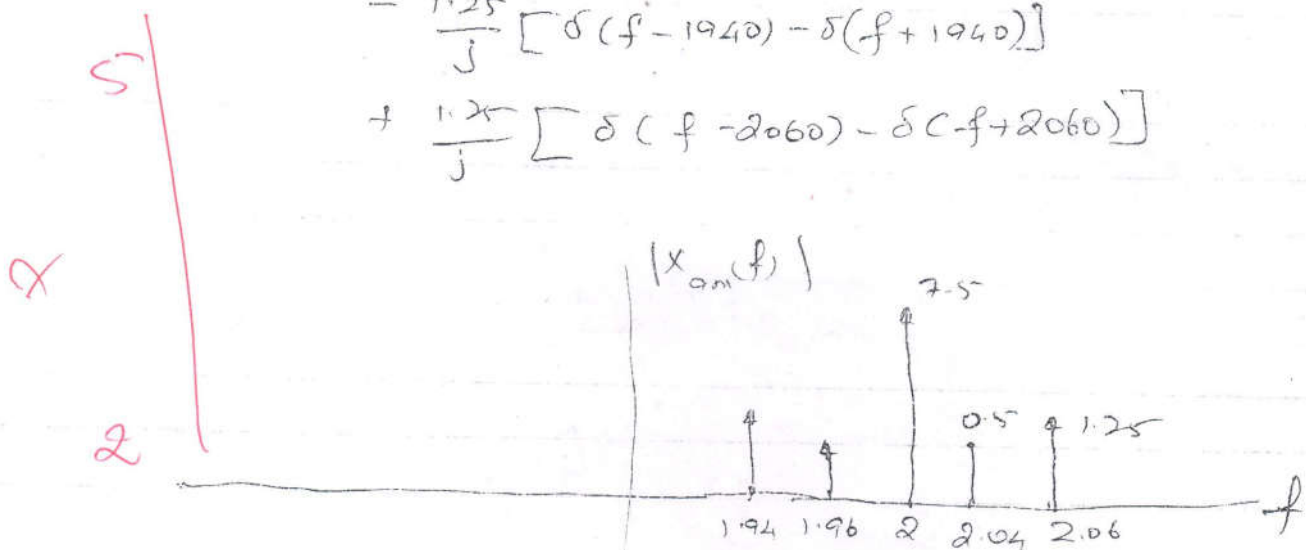 - 1.25/j [ δ(f-1940) - δ(f+1940)]
5
+ 1.25/j [ δ(f-2060) - δ(f+2060)]
|X_am(f)|
7.5
0.5 1.25
2
1.94 1.96 2 2.04 2.06 f